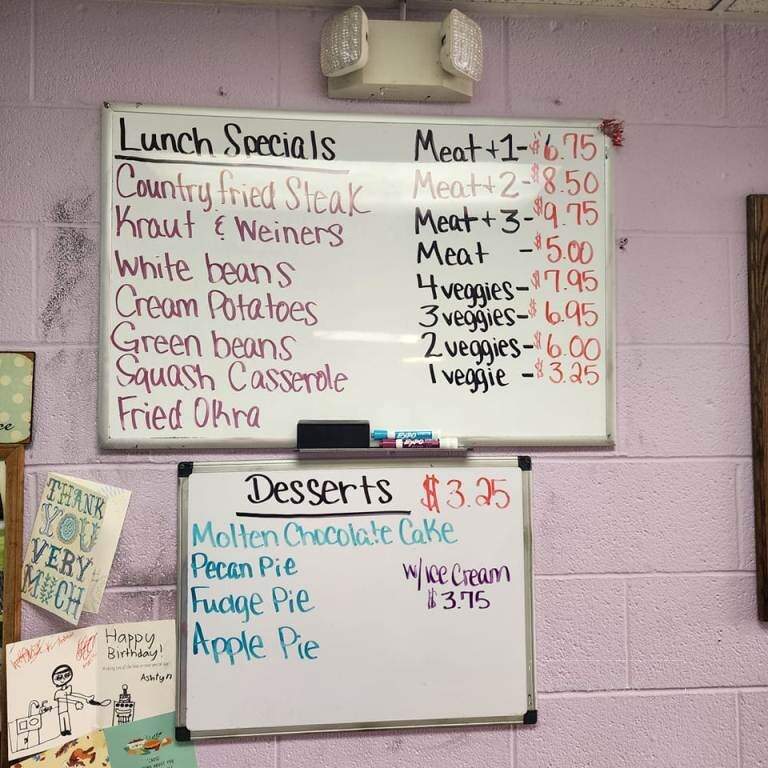 Lunch Specials
Country fried Steak
Kraut & Weiners
White beans
Cream Potatoes
Green beans
Squash Casserole
Fried Okra
Meat +1- $6.75
Meat + 2- $8.50
Meat + 3- $9.75
Meat - $5.00
4 veggies- $7.95
3 veggies- $6.95
2 veggies- $6.00
1 veggie - $3.25
EXPO
EXPO
Desserts $3.25
Molten Chocolate Cake
Pecan Pie
Fudge Pie
Apple Pie
w/ice Cream
$3.75
THANK
YOU
VERY
MUCH
Happy
Birthday!
Ashtyn